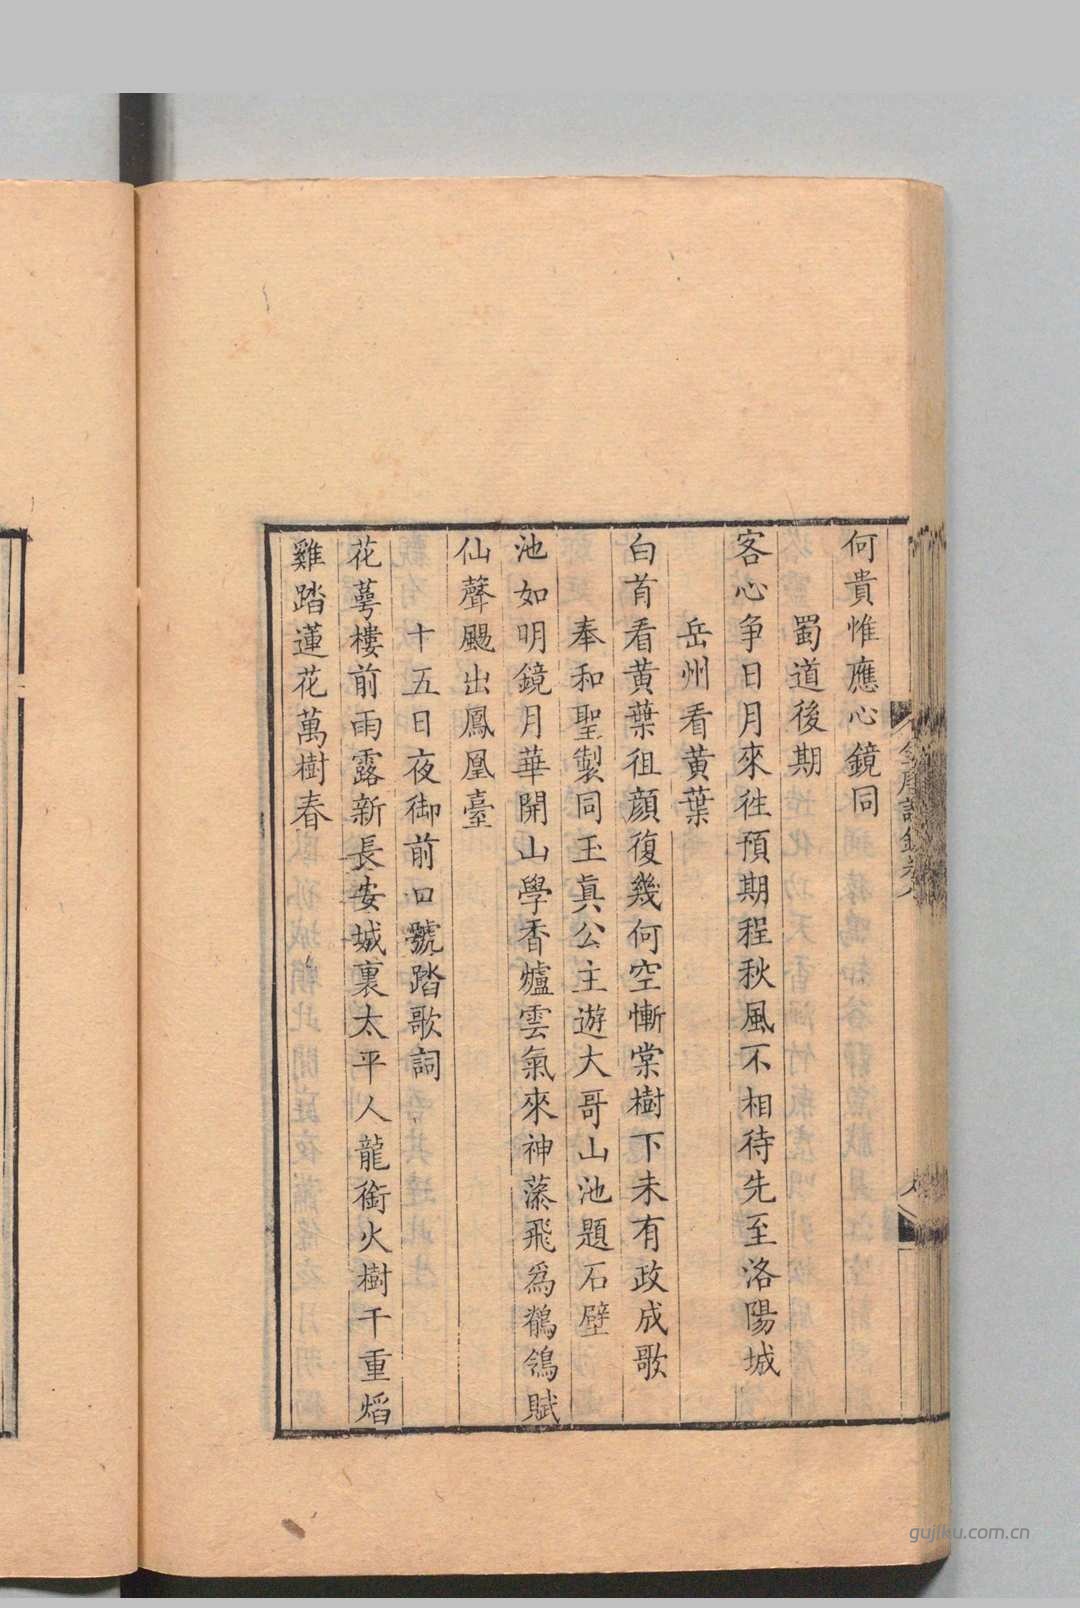 何貴惟應心鏡同
蜀道後期
客心争日月來徃預期程秋風不相待先至洛陽城
岳州看黄葉
白首看黄葉徂顔復幾何空慚棠樹下未有政成歌
奉和聖製同玉真公主遊大哥山池題石壁
池如明鏡月華開山學香爐雲氣來神藻飛爲鶺鴒賦
仙聲颺出鳳凰臺
十五日夜御前口號踏歌詞
花萼樓前雨露新長安城裏太平人龍銜火樹千重焰
雞踏蓮花萬樹春
gujiku.com.cn